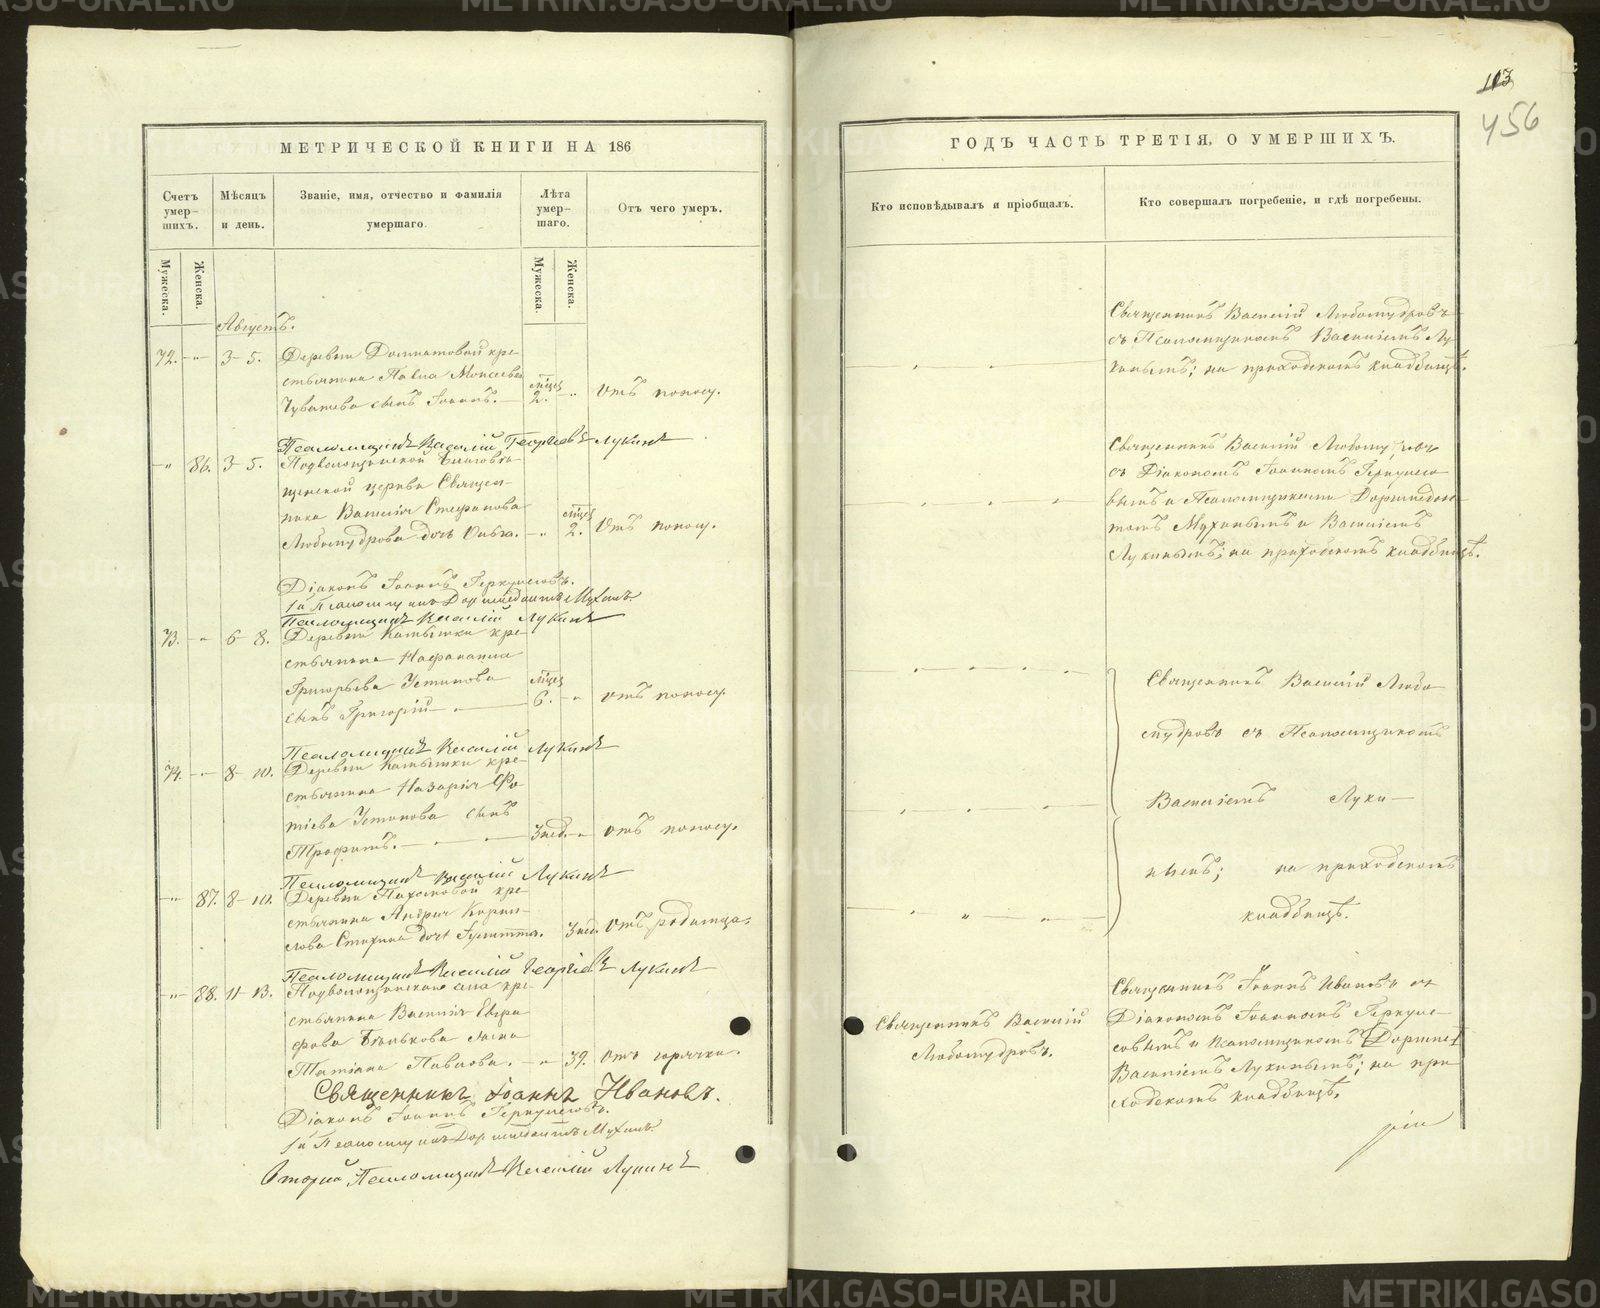 113
456
МЕТРИЧЕСКОЙ КНИГИ НА 186
Счетъ умер-
шихъ.
Мѣсяцъ
и день.
Званіе, имя, отчество и фамилія
умершаго.
Лѣта
умер-
шаго.
Отъ чего умеръ.
Мужеска.
Женска.
Мужеска.
Женска.
Августъ.
72. - „ 3 - 5. Деревни кре-
стьянина Павла Моисеева
сынъ Іоаннъ. мѣсяц. 2. - „ Отъ поносу.
Псаломщикъ Василій Георгіевъ Лукинъ
- „ 86. 3 - 5. Подволошинской Благовѣ-
щенской церкви Священ-
ника Василія Стефанова
Любомудрова дочь Ольга. - „ мѣсяц. 2. Отъ поносу.
Діаконъ Іоаннъ Геркулесовъ.
1й Псаломщикъ Доримедонтъ Мухинъ.
Псаломщикъ Василій Лукинъ
73. - „ 6 - 8. Деревни Камышки кре-
стьянина Нафанаила
Григорьева Устинова
сынъ Григорій мѣсяц. 6. - „ отъ поносу
Псаломщикъ Василій Лукинъ
74. - „ 8 - 10. Деревни Камышки кре-
стьянина Назарія Фо-
тіева Устинова сынъ
Трофимъ. 3 нед. - „ отъ поносу.
Псаломщикъ Василій Лукинъ
- „ 87. 8 - 10. Деревни Пахомовой кре-
стьянина Андрея Корни-
лова дочь Іулитта. 3 нед. Отъ родимца.
Псаломщикъ Василій Георгіевъ Лукинъ
- „ 88. 11 - 13. Подволошинскаго села кре-
стьянина Василія Евгра-
фова Бѣлькова жена
Татіана Павлова. - „ 39. отъ горячки.
Священникъ Іоаннъ Ивановъ.
Діаконъ Іоаннъ Геркулесовъ.
1й Псаломщикъ Доримедонтъ Мухинъ.
Второй Псаломщикъ Василій Лукинъ
ГОДЪ ЧАСТЬ ТРЕТІЯ, О УМЕРШИХЪ.
Кто исповѣдывалъ и пріобщалъ.
Кто совершалъ погребеніе, и гдѣ погребены.
Священникъ Василій Любомудровъ
съ Псаломщикомъ Василіемъ Лу-
кинымъ; на приходскомъ кладбищѣ.
Священникъ Василій Любомудровъ
съ Діакономъ Іоанномъ Геркулесо-
вымъ и Псаломщиками Доримедон-
томъ Мухинымъ и Василіемъ
Лукинымъ; на приходскомъ кладбищѣ.
Священникъ Василій Любо-
мудровъ съ Псаломщикомъ
Василіемъ Луки-
нымъ; на приходскомъ
кладбищѣ.
Священникъ Василій
Любомудровъ.
Священникъ Іоаннъ Ивановъ съ
Діакономъ Іоанномъ Геркуле-
совымъ и Псаломщикомъ
Василіемъ Лукинымъ; на при-
ходскомъ кладбищѣ.
METRIKI.GASO-URAL.RU